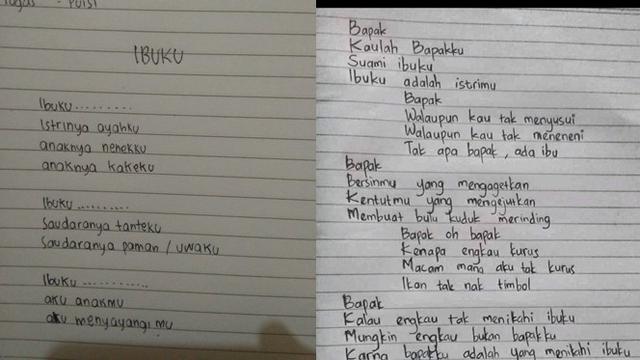 Tugas - Puisi
IBUKU
Ibuku.........
Istrinya ayahku
anaknya nenekku
anaknya kakekku
Ibuku..........
Saudaranya tanteku
Saudaranya paman / uwaku
Ibuku............
aku anakmu
aku menyayangi mu
Bapak
Kaulah Bapakku
Suami ibuku
Ibuku adalah istrimu
Bapak
Walaupun kau tak menyusui
Walaupun kau tak meneneni
Tak apa bapak, ada ibu
Bapak
Bersinmu yang mengagetkan
Kentutmu yang mengejutkan
Membuat bulu kuduk merinding
Bapak oh bapak
Kenapa engkau kurus
Macam mana aku tak kurus
Ikan tak nak timbol
Bapak
Kalau engkau tak menikahi ibuku
Mungkin engkau bukan bapakku
Karna bapakku adalah yang menikahi ibuku